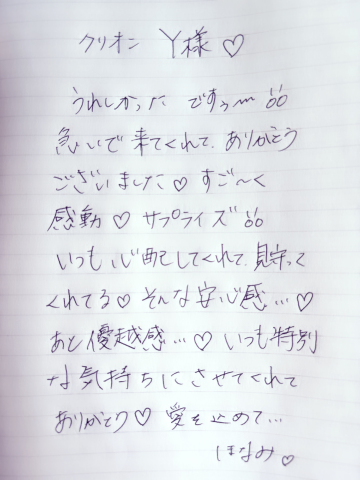 クリオン Y様♡
うれしかった ですぅ〜 
急いで来てくれて、ありがとう
ございました♡ すご〜く
感動♡ サプライズ
いつも心配してくれて、見守って
くれてる♡ そんな安心感…♡
あと優越感…♡ いつも特別
な気持ちにさせてくれて
ありがとう♡ 愛を込めて…
ほなみ♡